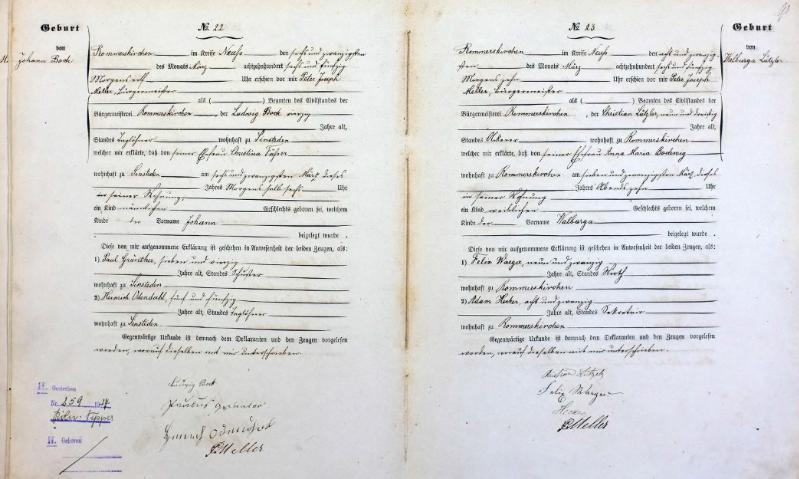 Geburt
von
Johann Bock
№ 22
Rommerskirchen im Kreise Neuß den sechs und zwanzigsten
des Monats März achtzehnhundert sechs und fünfzig
Morgens elf Uhr erschien vor mir Peter Joseph
Meller, Bürgermeister
als ( ) Beamten des Civilstandes der
Bürgermeisterei Rommerskirchen, der Ludwig Bock vierzig
Jahre alt,
Standes Taglöhner wohnhaft zu Sinsteden
welcher mir erklärte, daß von seiner Ehefrau Christina
wohnhaft zu Sinsteden am sechs und zwanzigsten März dieses
Jahres Morgens halb sechs Uhr
in seiner Wohnung
ein Kind männlichen Geschlechts geboren sei, welchem
Kinde der Vorname Johann
beigelegt wurde.
Diese von mir aufgenommene Erklärung ist geschehen in Anwesenheit der beiden Zeugen, als:
1) Paul sieben und vierzig
Jahre alt, Standes Schuster
wohnhaft zu Sinsteden
2) Heinrich Odendahl, fünf und fünfzig
Jahre alt, Standes Taglöhner
wohnhaft zu Sinsteden
Gegenwärtige Urkunde ist demnach dem Declaranten und den Zeugen vorgelesen
worden, worauf dieselben mit mir unterschrieben.
Ludwig Bock
Paulus
Heinrich Odendahl
P. Meller
Gestorben
Nr. 259 19
Köln
Geboren
Geburt
von
Walburga Lützler
№ 23
Rommerskirchen im Kreise Neuß den acht und zwanzig-
sten des Monats März achtzehnhundert sechs und fünfzig
Morgens zehn Uhr erschien vor mir Peter Joseph
Meller, Bürgermeister
als ( ) Beamten des Civilstandes der
Bürgermeisterei Rommerskirchen, der Christian Lützler, neun und dreißig
Jahre alt,
Standes Ackerer wohnhaft zu Rommerskirchen
welcher mir erklärte, daß von seiner Ehefrau Anna Maria
wohnhaft zu Rommerskirchen am sieben und zwanzigsten März dieses
Jahres Abends zehn Uhr
in seiner Wohnung
ein Kind weiblichen Geschlechts geboren sei, welchem
Kinde der Vorname Walburga
beigelegt wurde.
Diese von mir aufgenommene Erklärung ist geschehen in Anwesenheit der beiden Zeugen, als:
1) Felix neun und zwanzig
Jahre alt, Standes Wirth
wohnhaft zu Rommerskirchen
2) Adam acht und zwanzig
Jahre alt, Standes Sekretair
wohnhaft zu Rommerskirchen
Gegenwärtige Urkunde ist demnach dem Deklaranten und den Zeugen vorgelesen
worden, worauf dieselben mit mir unterschrieben.
Felix
P. Meller